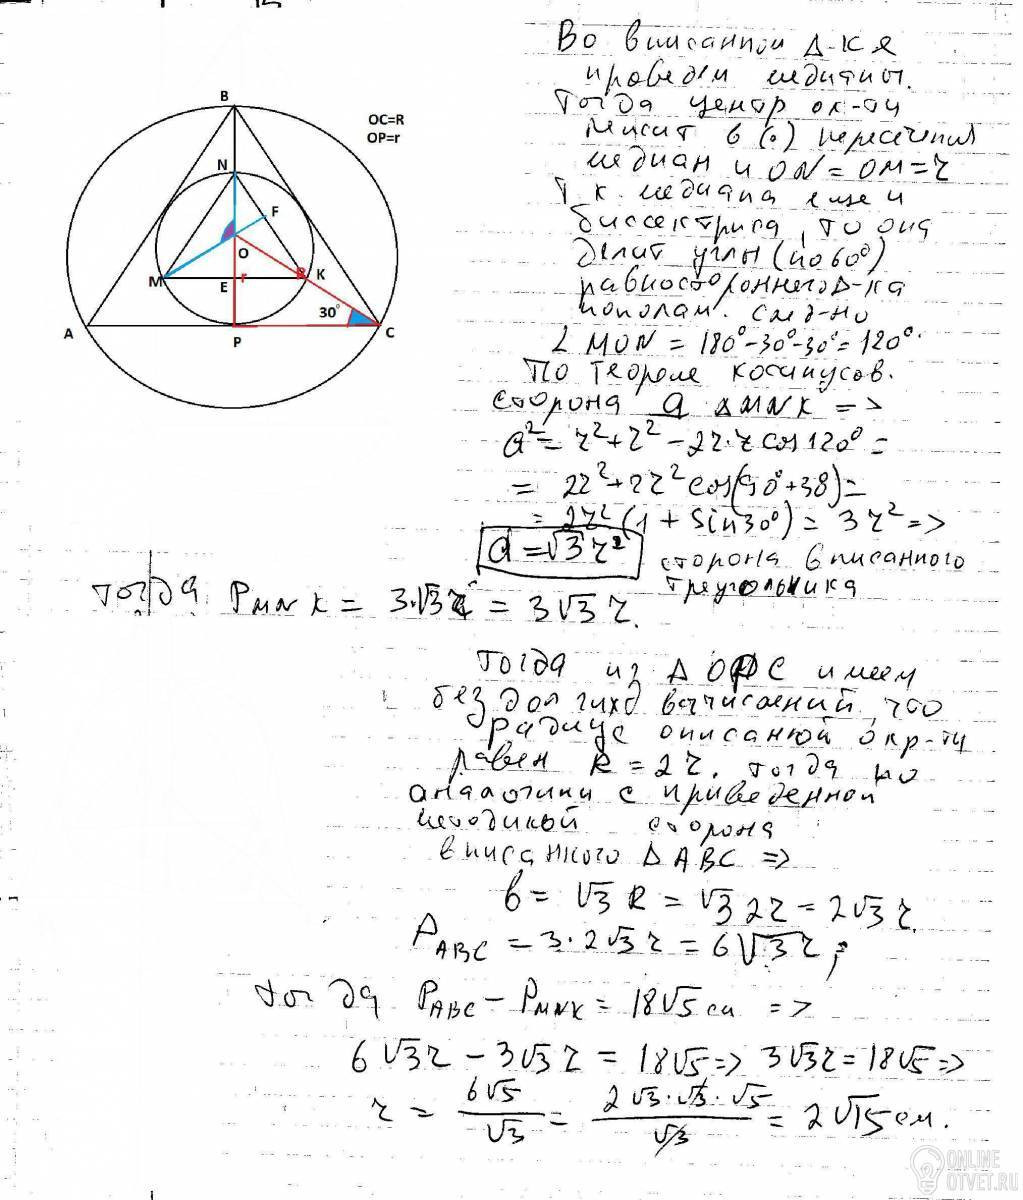 B
OC=R
OP=r
N
F
O
M
E
r
K
30°
A
P
C
Во вписанном Δ-ке
проведём медианы.
Тогда центр ок-ти
лежит в (.) пересечения
медиан и ON = OM = r
Т.к. медиана ещё и
биссектриса, то она
делит углы (по 60°)
равностороннего Δ-ка
пополам. След-но
∠ MON = 180° - 30° - 30° = 120°.
По теореме косинусов.
сторона a ΔMNK =>
a² = r² + r² - 2r·r cos 120° =
= 2r² + 2r² cos(90° + 30) =
= 2r² (1 + sin 30°) = 3r² =>
a = √3 r²
сторона вписанного
треугольника
тогда P MNK = 3·√3 r = 3√3 r.
Тогда из Δ OPC имеем
без долгих вычислений, что
радиус описанной окр-ти
равен R = 2r. Тогда по
аналогии с приведенной
методикой сторона
вписанного Δ ABC =>
b = √3 R = √3 2r = 2√3 r.
P ABC = 3·2√3 r = 6√3 r;
тогда P ABC - P MNK = 18√5 см =>
6√3 r - 3√3 r = 18√5 => 3√3 r = 18√5 =>
r = 6√5/√3 = 2√3·√3·√5/√3 = 2√15 см.
ONLINE
OTVET.RU